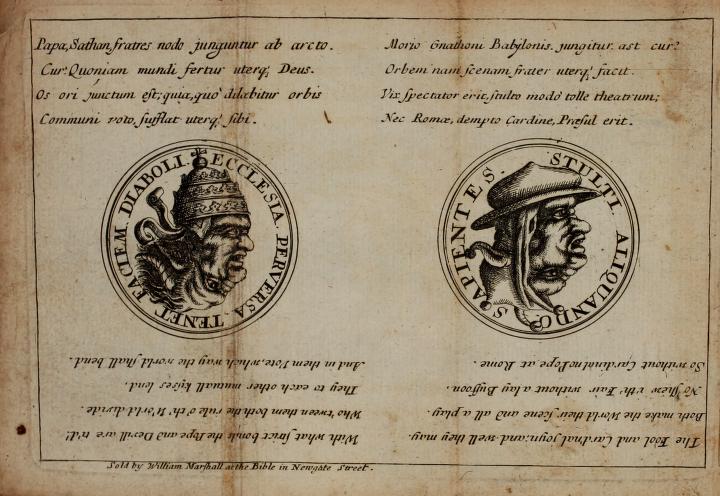 Papa, Sathan, fratres nodo junguntur ab arcto.
Cur? Quoniam mundi fertur uterq; Deus.
Os ori junctum est; quia, quò dilabitur orbis
Communi voto, sufflat uterq; sibi.
Morio Gnathoni Babylonis jungitur, ast cur?
Orbem nam scenam frater uterq; facit.
Vix spectator erit, stulto modò tolle theatrum;
Nec Romæ, dempto Cardine, Præsul erit.
ECCLESIA PERVERSA TENET FACIEM DIABOLI
STULTI ALIQUANDO SAPIENTES
With what strict bonds the Pope and Devill are ti'd!
Who 'tween them both the rule o'th' World divide.
They to each other mutuall kisses lend,
And in them Vote, which way the world shall bend.
The Fool and Cardnal joyn; and well they may.
Both make the World their Scene and all a play.
No Shew i'th' Fair without a lay Buffoon.
So without Cardinal no Pope at Rome.
Sold by William Marshall at the Bible in Newgate Street.